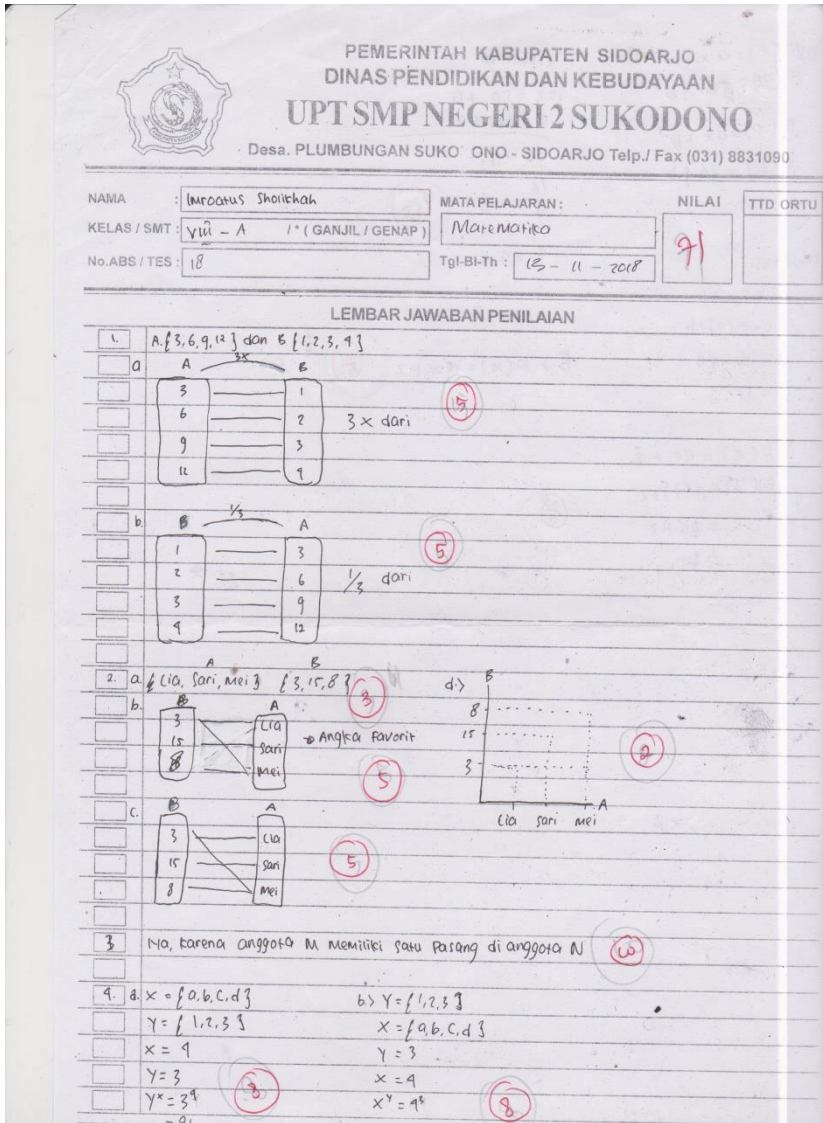 PEMERINTAH KABUPATEN SIDOARJO
DINAS PENDIDIKAN DAN KEBUDAYAAN
UPT SMP NEGERI 2 SUKODONO
Desa. PLUMBUNGAN SUKO ONO - SIDOARJO Telp./ Fax (031) 8831090
NAMA : Imroatus Sholikhah
KELAS / SMT : VIII - A / * ( GANJIL / GENAP )
No.ABS / TES : 18
MATA PELAJARAN :
Matematika
Tgl-Bl-Th : 13 - 11 - 2018
NILAI
71
TTD ORTU
LEMBAR JAWABAN PENILAIAN
1. A.{3,6,9,12} dan B {1,2,3,4}
a A 3x B
3 1
6 2 3 x dari
9 3
12 4
5
b. B 1/3 A
1 3
2 6 1/3 dari
3 9
4 12
5
A B
2. a. {Lia, Sari, Mei} {3,15,8}
3
b. B A
3 Lia
15 Sari → Angka Favorit
8 Mei
5
c. B A
3 Lia
15 Sari
8 Mei
5
d.> B
8
15
3
A
Lia Sari Mei
2
3 Iya, karena anggota M memiliki satu pasang di anggota N
4. a. X = {a,b,c,d}
Y = {1,2,3}
X = 4
Y = 3
Y^x = 3^4
8
b> Y = {1,2,3}
X = {a,b,c,d}
Y = 3
X = 4
X^Y = 4^3
8